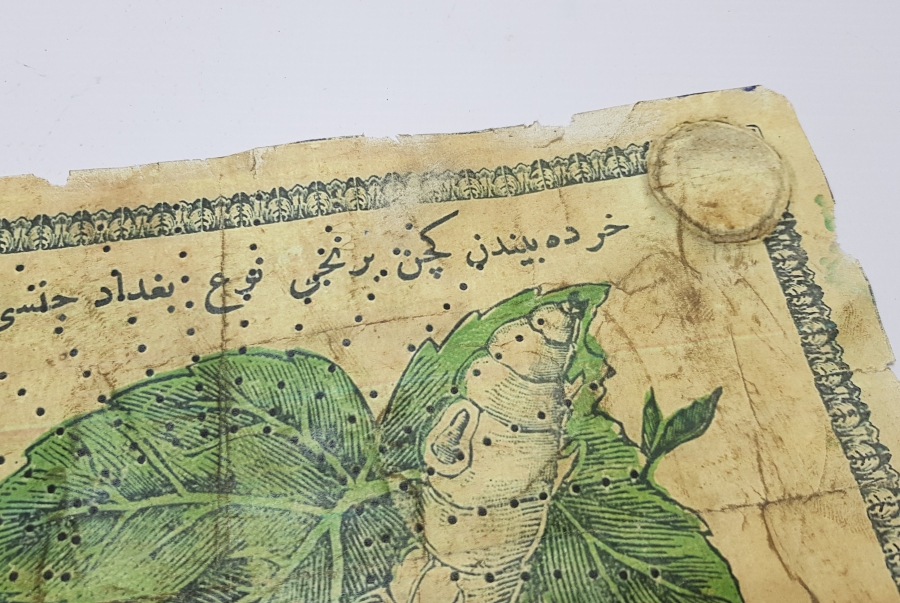 خرده بیندن کچن برنجی نوع بغداد جنسی